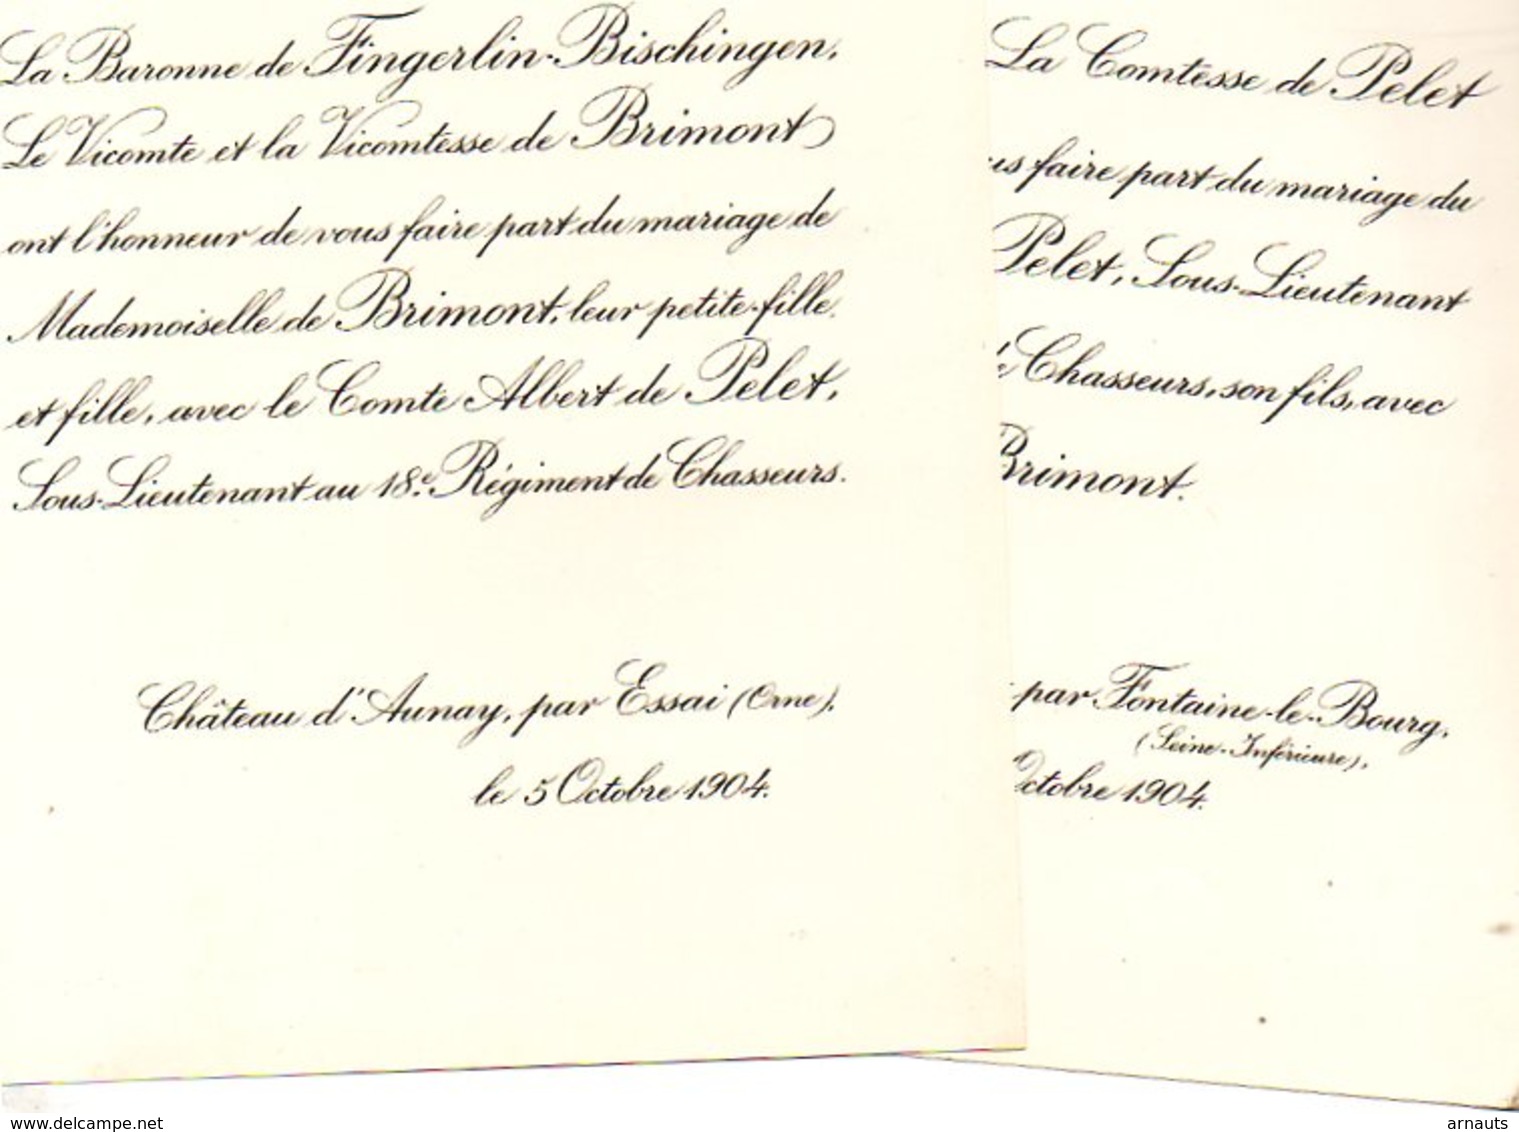 La Baronne de Fingerlin-Bischingen,
Le Vicomte et la Vicomtesse de Brimont
ont l'honneur de vous faire part du mariage de
Mademoiselle de Brimont, leur petite-fille
et fille, avec le Comte Albert de Pelet,
Sous-Lieutenant au 18e Régiment de Chasseurs.
Château d'Aunay, par Essai (Orne).
le 5 Octobre 1904.
La Comtesse de Pelet
us faire part du mariage du
Pelet, Sous-Lieutenant
Chasseurs, son fils, avec
Brimont.
par Fontaine-le-Bourg,
(Seine-Inférieure).
Octobre 1904.
www.delcampe.net
arnauts